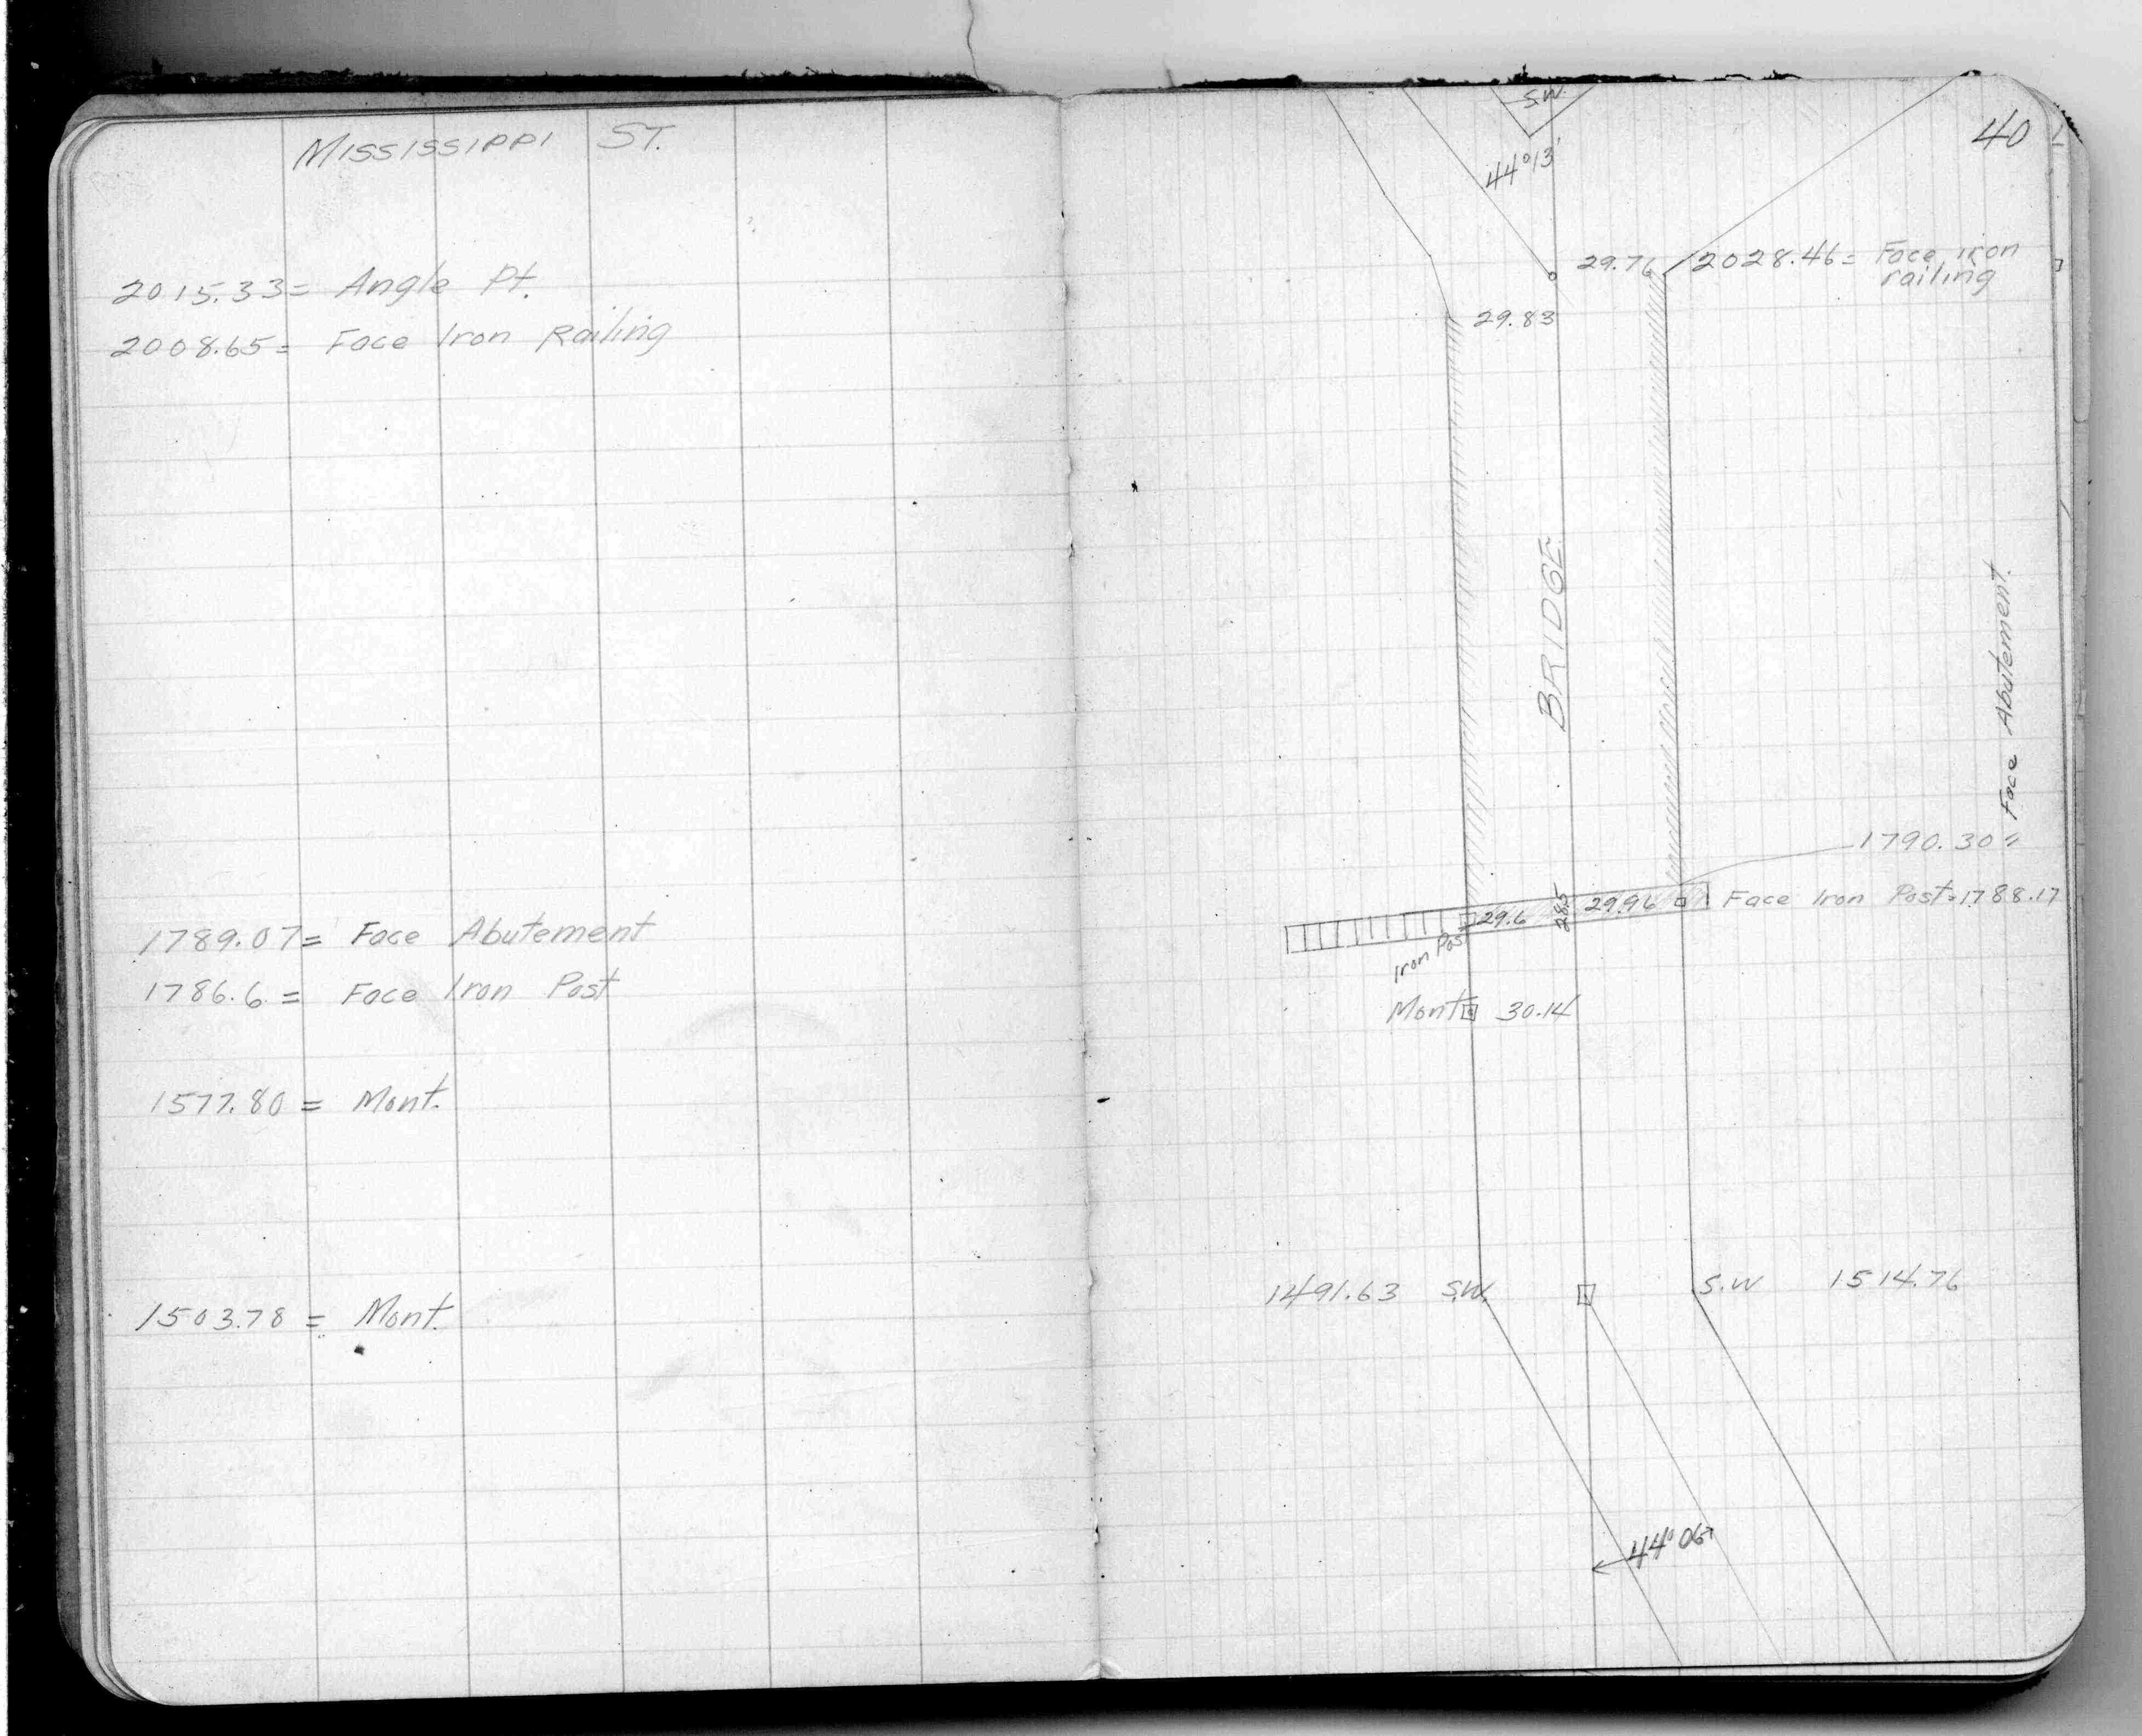 MISSISSIPPI ST.
2015.33 = Angle Pt.
2008.65 = Face Iron Railing
1789.07 = Face Abutement
1786.6 = Face Iron Post
1577.80 = Mont.
1503.78 = Mont.
40
S.W.
44°13'
29.76
2028.46 = Face iron
railing
29.83
BRIDGE
Face Abutement.
1790.30 =
29.6
28.5
29.96
Face Iron Post = 1788.17
Iron Pos
Mont 30.14
1491.63 S.W.
S.W 1514.76
44°06'